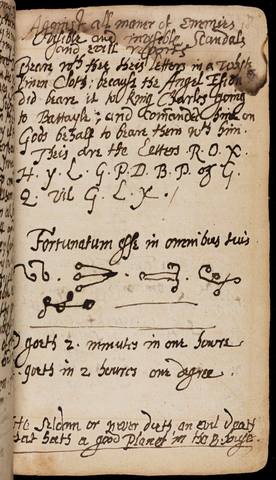 Against all maner of Enemies
Visible and invisible Scandals
and evill reports
Beare wth thee theis letters in a
linen Cloth; because the Angel
did beare it to King Charles going
to Battayle; and Comanded him on
Gods behalfe to beare them wth him.
Theis are the Letters. R. O. X.
H. y. L. G. P. D. B. P. of G.
2. Vil G. L. X.
Fortunatum esse in omnibus tuis
goeth 2. minutes in one houre
goeth in 2 houres one degree.
He seldom or never dieth an evil death
that hath a good Planet in the 8. house.